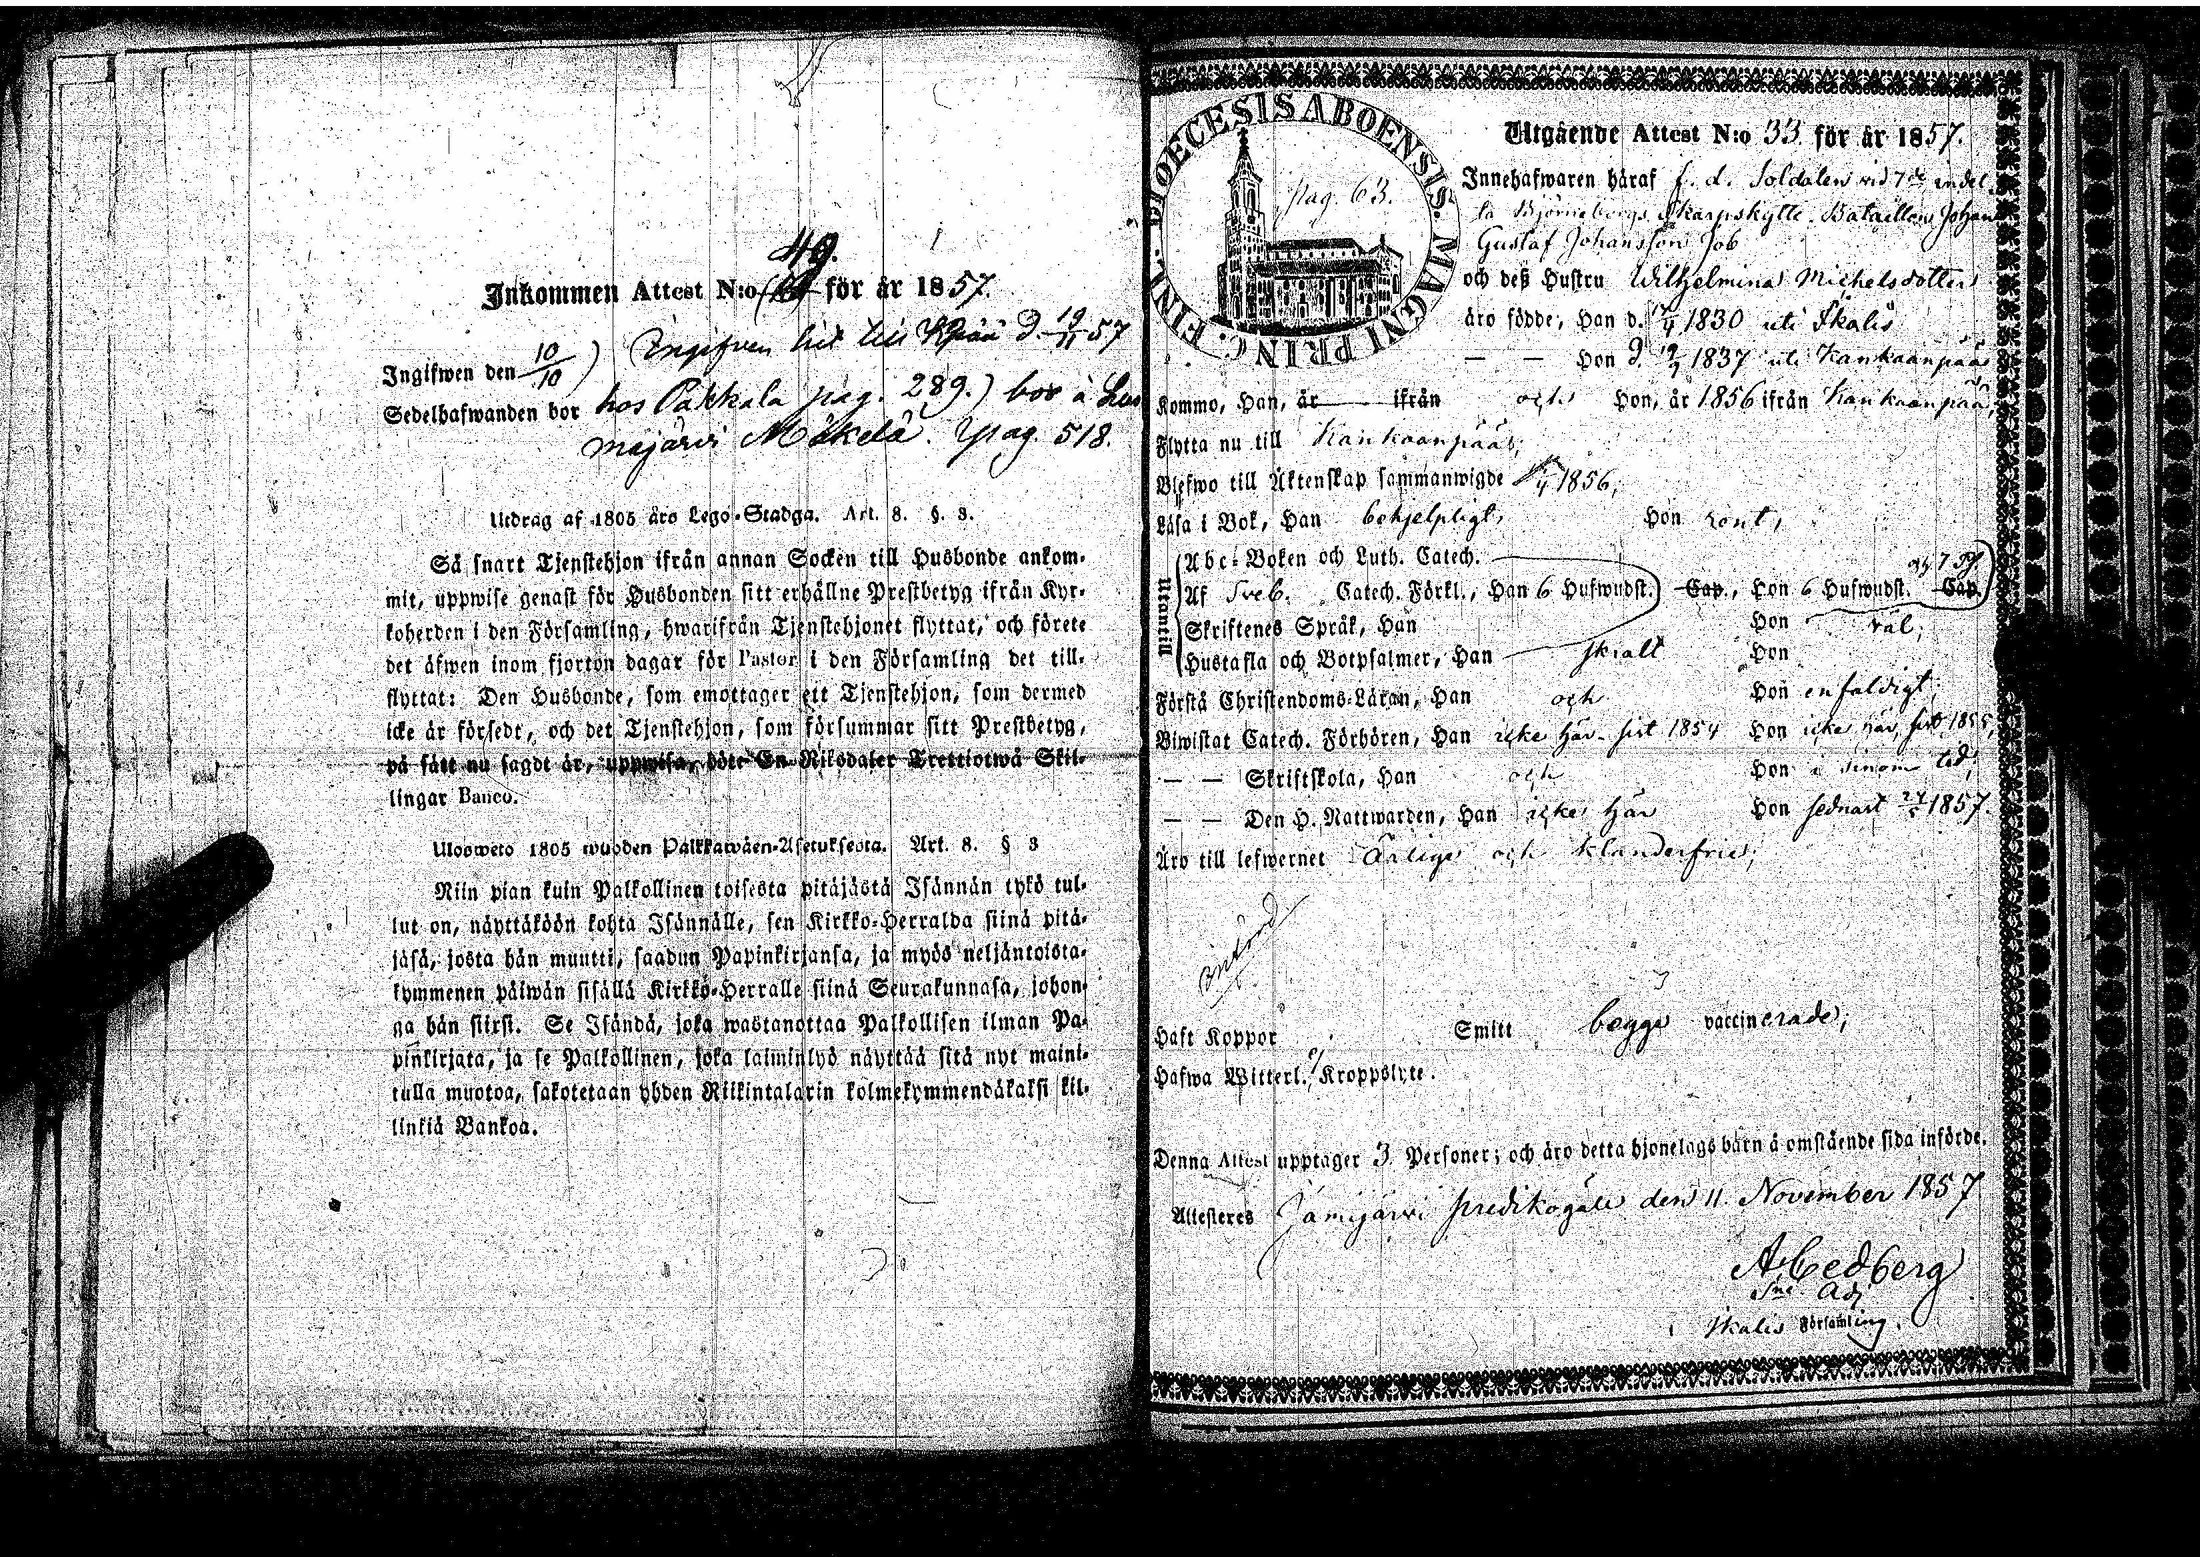 49.
Inkommen Attest N:o för år 1857.
Ingifven hit till d. 19/11 57
Ingifwen den 10/10 )
Sedelhafwanden bor hos Pakkala pag. 289.) bor à
majärvi Mäkelä. pag. 518.
Utdrag af 1805 års Lego-Stadga. Art. 8. §. 3.
Så snart Tjenstehjon ifrån annan Socken till Husbonde ankom-
mit, uppwise genast för Husbonden sitt erhållne Prestbetyg ifrån Kyr-
koherden i den Församling, hwarifrån Tjenstehjonet flyttat, och förete
det äfwen inom fjorton dagar för Pastor i den Församling det till-
flyttat: Den Husbonde, som emottager ett Tjenstehjon, som dermed
icke är försedt, och det Tjenstehjon, som försummar sitt Prestbetyg,
på sätt nu sagdt är, uppwisa, böte En Riksdaler Trettiotwå Skil-
lingar Banco.
Ulosweto 1805 wuoden Palkkawäen-Asetuksesta. Art. 8. § 3
Niin pian kuin Palkollinen toisesta pitäjästä Isännän tykö tul-
lut on, näyttäköön kohta Isännälle, sen Kirkko-Herralda siinä pitä-
jäsä, josta hän muutti, saadun Papinkirjansa, ja myös neljäntoista-
kymmenen päiwän sisällä Kirkko-Herralle siinä Seurakunnasa, johon-
ga hän siirsi. Se Isändä, joka wastanottaa Palkollisen ilman Pa-
pinkirjata, ja se Palkollinen, joka laiminlyö näyttää sitä nyt maini-
tulla muotoa, sakotetaan yhden Riikintalarin kolmekymmendäkaksi kil-
linkiä Bankoa.
DIOECESIS ABOENSIS. MAGNI PRINC. FINL.
pag. 63.
Utgående Attest N:o 33 för år 1857.
Innehafwaren häraf f. d. Soldaten vid 7de indel
ta Björneborgs Skarpskytte Bataillon Johan
Gustaf Johansson Job
och deß Hustru Wilhelmina Michelsdotter
äro födde, Han d. 1830 uti Ikalis
— — Hon d. 1837 uti Kankaanpää
Kommo, Han, år — ifrån och Hon, år 1856 ifrån Kankaanpää,
Flytta nu till Kankaanpää,
Blefwo till Äktenskap sammanwigde 1856,
Läsa i Bok, Han behjelpligt, Hon rent,
Utantill
Abc-Boken och Luth. Catech.
Af Sveb. Catech. Förkl., Han 6 Hufwudst. Cap., Hon 6 Hufwudst. Cap.
Skriftenes Språk, Han Hon väl,
Hustafla och Botpsalmer, Han skralt Hon
Förstå Christendoms-Läran, Han och Hon enfaldigt,
Biwistat Catech. Förhören, Han icke här sist 1854 Hon icke här sist 1855,
— — Skriftskola, Han och Hon i sinom tid,
— — Den H. Nattwarden, Han icke här Hon sednast 1857.
Äro till lefwernet Ärlige och klanderfrie;
Haft Koppor Smitt begge vaccinerade;
Hafwa Witterl. Kroppslyte.
Denna Attest upptager 3 Personer; och äro detta hjonelags barn å omstående sida införde.
Attesteres Jämijärvi predikogäll den 11. November 1857
Adj
i Ikalis Församling.